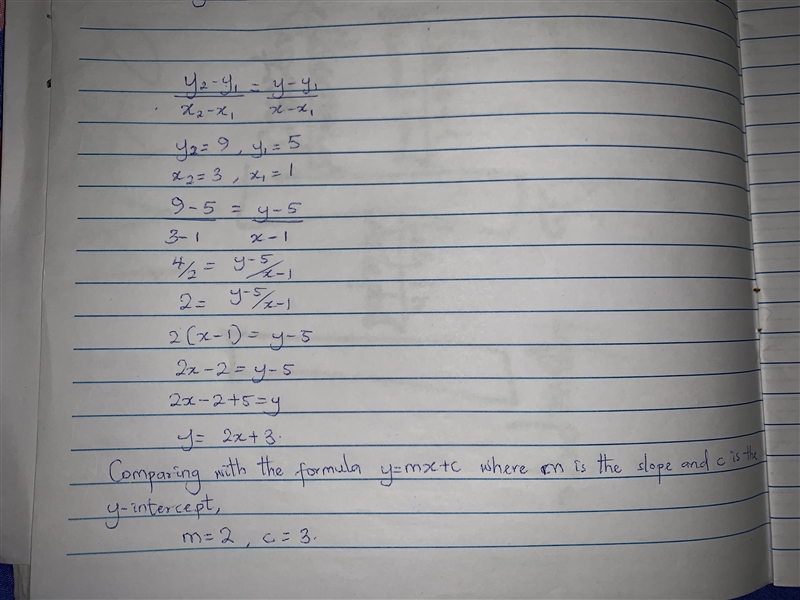 y₂-y₁/x₂-x₁ = y-y₁/x-x₁
y₂=9, y₁=5
x₂=3, x₁=1
9-5/3-1 = y-5/x-1
4/2= y-5/x-1
2= y-5/x-1
2(x-1)= y-5
2x-2=y-5
2x-2+5=y
y= 2x+3.
Comparing with the formula y=mx+c where m is the slope and c is the
y-intercept,
m=2, c=3.